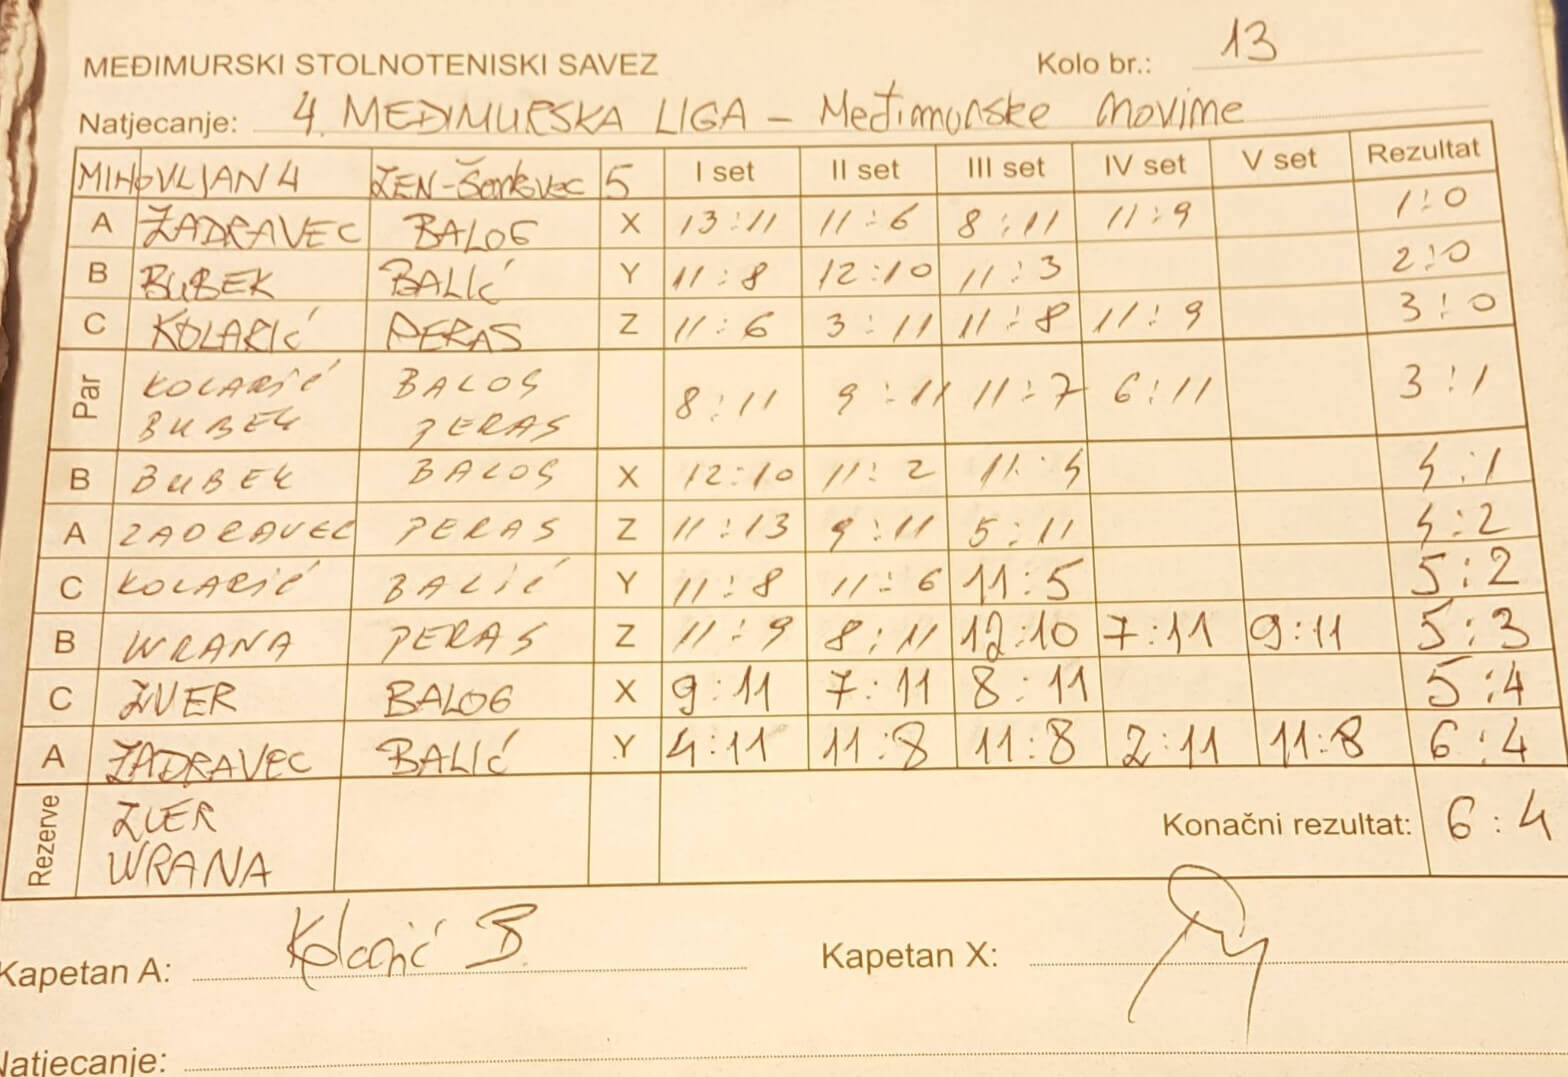 MEĐIMURSKI STOLNOTENISKI SAVEZ Kolo br.: 13
Natjecanje: 4. MEĐIMURSKA LIGA - Međimurske novine
MIHOVLJAN 4 ŽEN-Šenkovec 5 I set II set III set IV set V set Rezultat
A ZADRAVEC BALOG X 13:11 11:6 8:11 11:9 1:0
B BUBEK BALIĆ Y 11:8 12:10 11:3 2:0
C KOLARIĆ PERAS Z 11:6 3:11 11:8 11:9 3:0
Par KOLARIĆ BALOG 8:11 9:11 11:7 6:11 3:1
BUBEK PERAS
B BUBEK BALOG X 12:10 11:2 11:4 4:1
A ZADRAVEC PERAS Z 11:13 9:11 5:11 4:2
C KOLARIĆ BALIĆ Y 11:8 11:6 11:5 5:2
B WRANA PERAS Z 11:9 8:11 12:10 7:11 9:11 5:3
C ZVER BALOG X 9:11 7:11 8:11 5:4
A ZADRAVEC BALIĆ Y 4:11 11:8 11:8 2:11 11:8 6:4
Rezerve ZVER Konačni rezultat: 6:4
WRANA
Kapetan A: Kolarić B. Kapetan X:
Natjecanje: